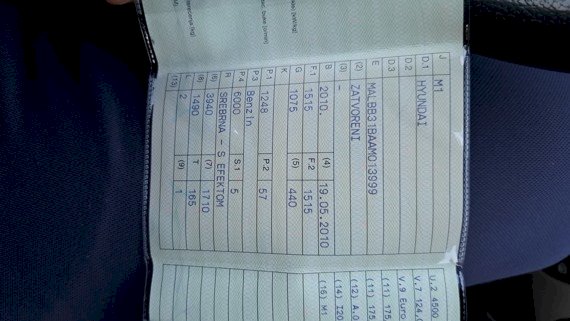 J M1
D.1 HYUNDAI
D.2
D.3
E MALBB31BAAM013999
(2) ZATVORENI
(3) –
B 2010. (4) 19.05.2010
F.1 1515 F.2 1515
G 1075 (5) 440
K
P.1 1248 P.2 57
P.3 Benzin
P.4 6000 S.1 5
R SREBRNA - S EFEKTOM
(6) 3940 (7) 1710
(8) 1490 T 165
L 2 (9) 1
(13)
U.2 4500
V.7 124,
V.9 Euro
(11) 175
(11) 175
(12) A.0
(14) I20
(16) M1